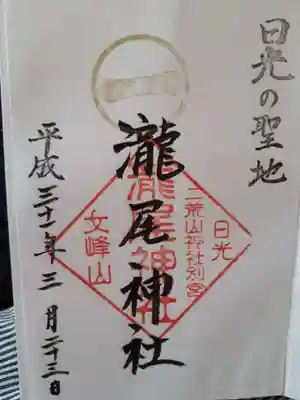 日光の聖地
日光
二荒山神社別宮
瀧尾神社
瀧尾神社
女峰山
平成三十一年三月二十三日